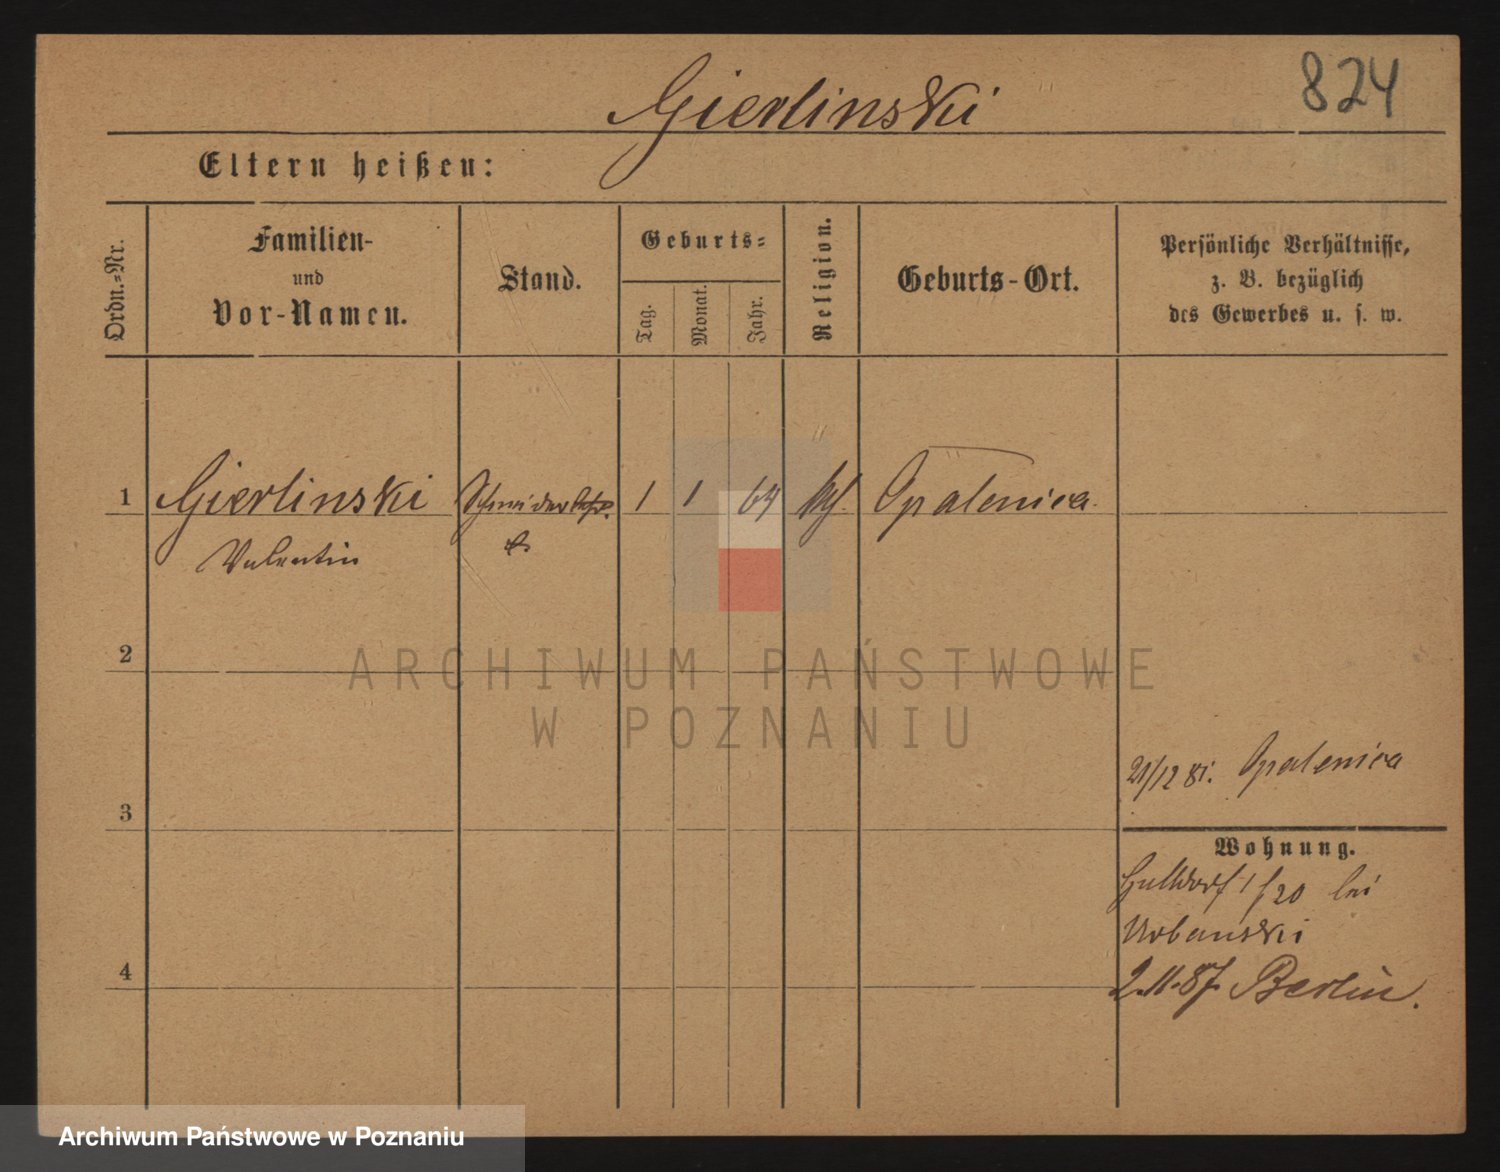 Gierlinski
824
Eltern heißen:
Ordn.-Nr.
Familien-
und
Vor-Namen.
Stand.
Geburts-
Tag.
Monat.
Jahr.
Religion.
Geburts-Ort.
Persönliche Verhältnisse,
z. B. bezüglich
des Gewerbes u. s. w.
1 Gierlinski Schneider 1 1 64 Opalenica.
Valentin
2
ARCHIWUM PAŃSTWOWE
W POZNANIU
21/12 81. Opalenica
3
Wohnung.
bei
Urbanski
4
2.11.87. Berlin.
Archiwum Państwowe w Poznaniu